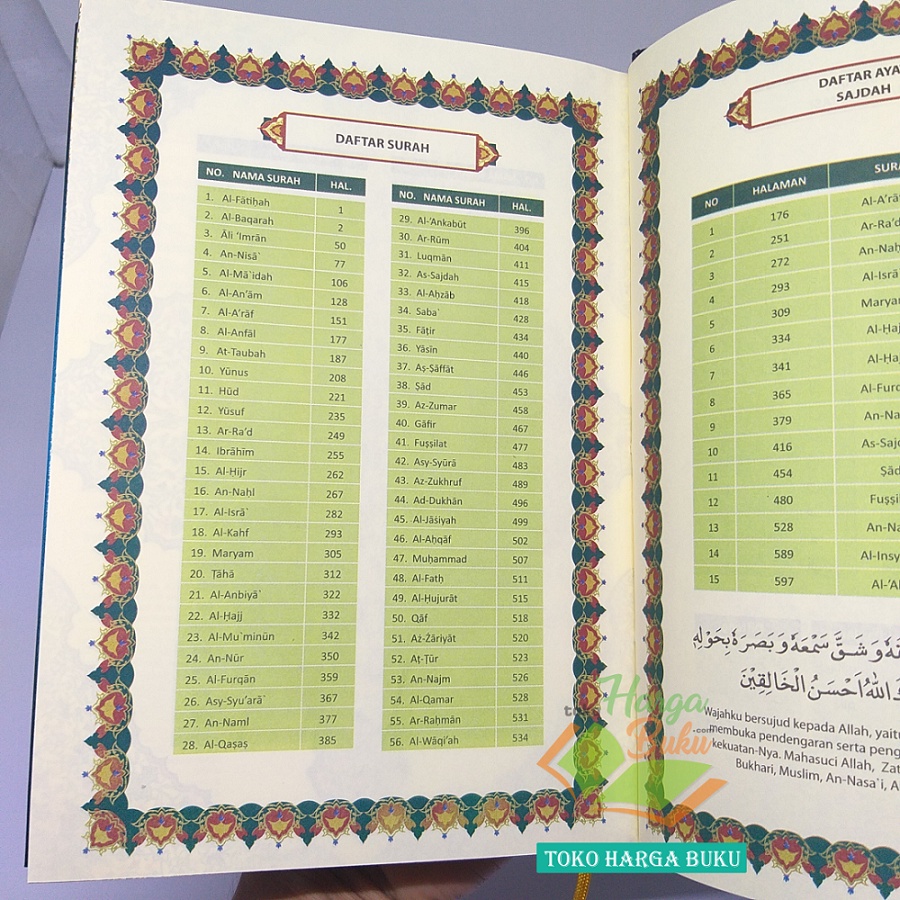 DAFTAR SURAH
NO. NAMA SURAH HAL.
1. Al-Fātiḥah 1
2. Al-Baqarah 2
3. Āli ‘Imrān 50
4. An-Nisā` 77
5. Al-Mā`idah 106
6. Al-An‘ām 128
7. Al-A‘rāf 151
8. Al-Anfāl 177
9. At-Taubah 187
10. Yūnus 208
11. Hūd 221
12. Yūsuf 235
13. Ar-Ra‘d 249
14. Ibrāhīm 255
15. Al-Ḥijr 262
16. An-Naḥl 267
17. Al-Isrā` 282
18. Al-Kahf 293
19. Maryam 305
20. Ṭāhā 312
21. Al-Anbiyā` 322
22. Al-Ḥajj 332
23. Al-Mu`minūn 342
24. An-Nūr 350
25. Al-Furqān 359
26. Asy-Syu‘arā` 367
27. An-Naml 377
28. Al-Qaṣaṣ 385
NO. NAMA SURAH HAL.
29. Al-‘Ankabūt 396
30. Ar-Rūm 404
31. Luqmān 411
32. As-Sajdah 415
33. Al-Aḥzāb 418
34. Saba` 428
35. Fāṭir 434
36. Yāsīn 440
37. Aṣ-Ṣāffāt 446
38. Ṣād 453
39. Az-Zumar 458
40. Gāfir 467
41. Fuṣṣilat 477
42. Asy-Syūrā 483
43. Az-Zukhruf 489
44. Ad-Dukhān 496
45. Al-Jāṡiyah 499
46. Al-Aḥqāf 502
47. Muḥammad 507
48. Al-Fatḥ 511
49. Al-Ḥujurāt 515
50. Qāf 518
51. Aż-Żāriyāt 520
52. Aṭ-Ṭūr 523
53. An-Najm 526
54. Al-Qamar 528
55. Ar-Raḥmān 531
56. Al-Wāqi‘ah 534
DAFTAR AYA
SAJDAH
NO HALAMAN SURA
1 176 Al-A‘rā
2 251 Ar-Ra‘d
3 272 An-Naḥ
4 293 Al-Isrā
5 309 Maryam
6 334 Al-Ḥaj
7 341 Al-Ḥaj
8 365 Al-Furq
9 379 An-Na
10 416 As-Sajd
11 454 Ṣād
12 480 Fuṣṣil
13 528 An-Na
14 589 Al-Insy
15 597 Al-‘Al
وَشَقَّ سَمْعَهٗ وَبَصَرَهٗ بِحَوْلِهٖ
اللّٰهُ اَحْسَنُ الْخَالِقِيْنَ
Wajahku bersujud kepada Allah, yaitu
membuka pendengaran serta peng
kekuatan-Nya. Mahasuci Allah, Zat
Bukhari, Muslim, An-Nasa`i, A
Harga
Buku.com
TOKO HARGA BUKU